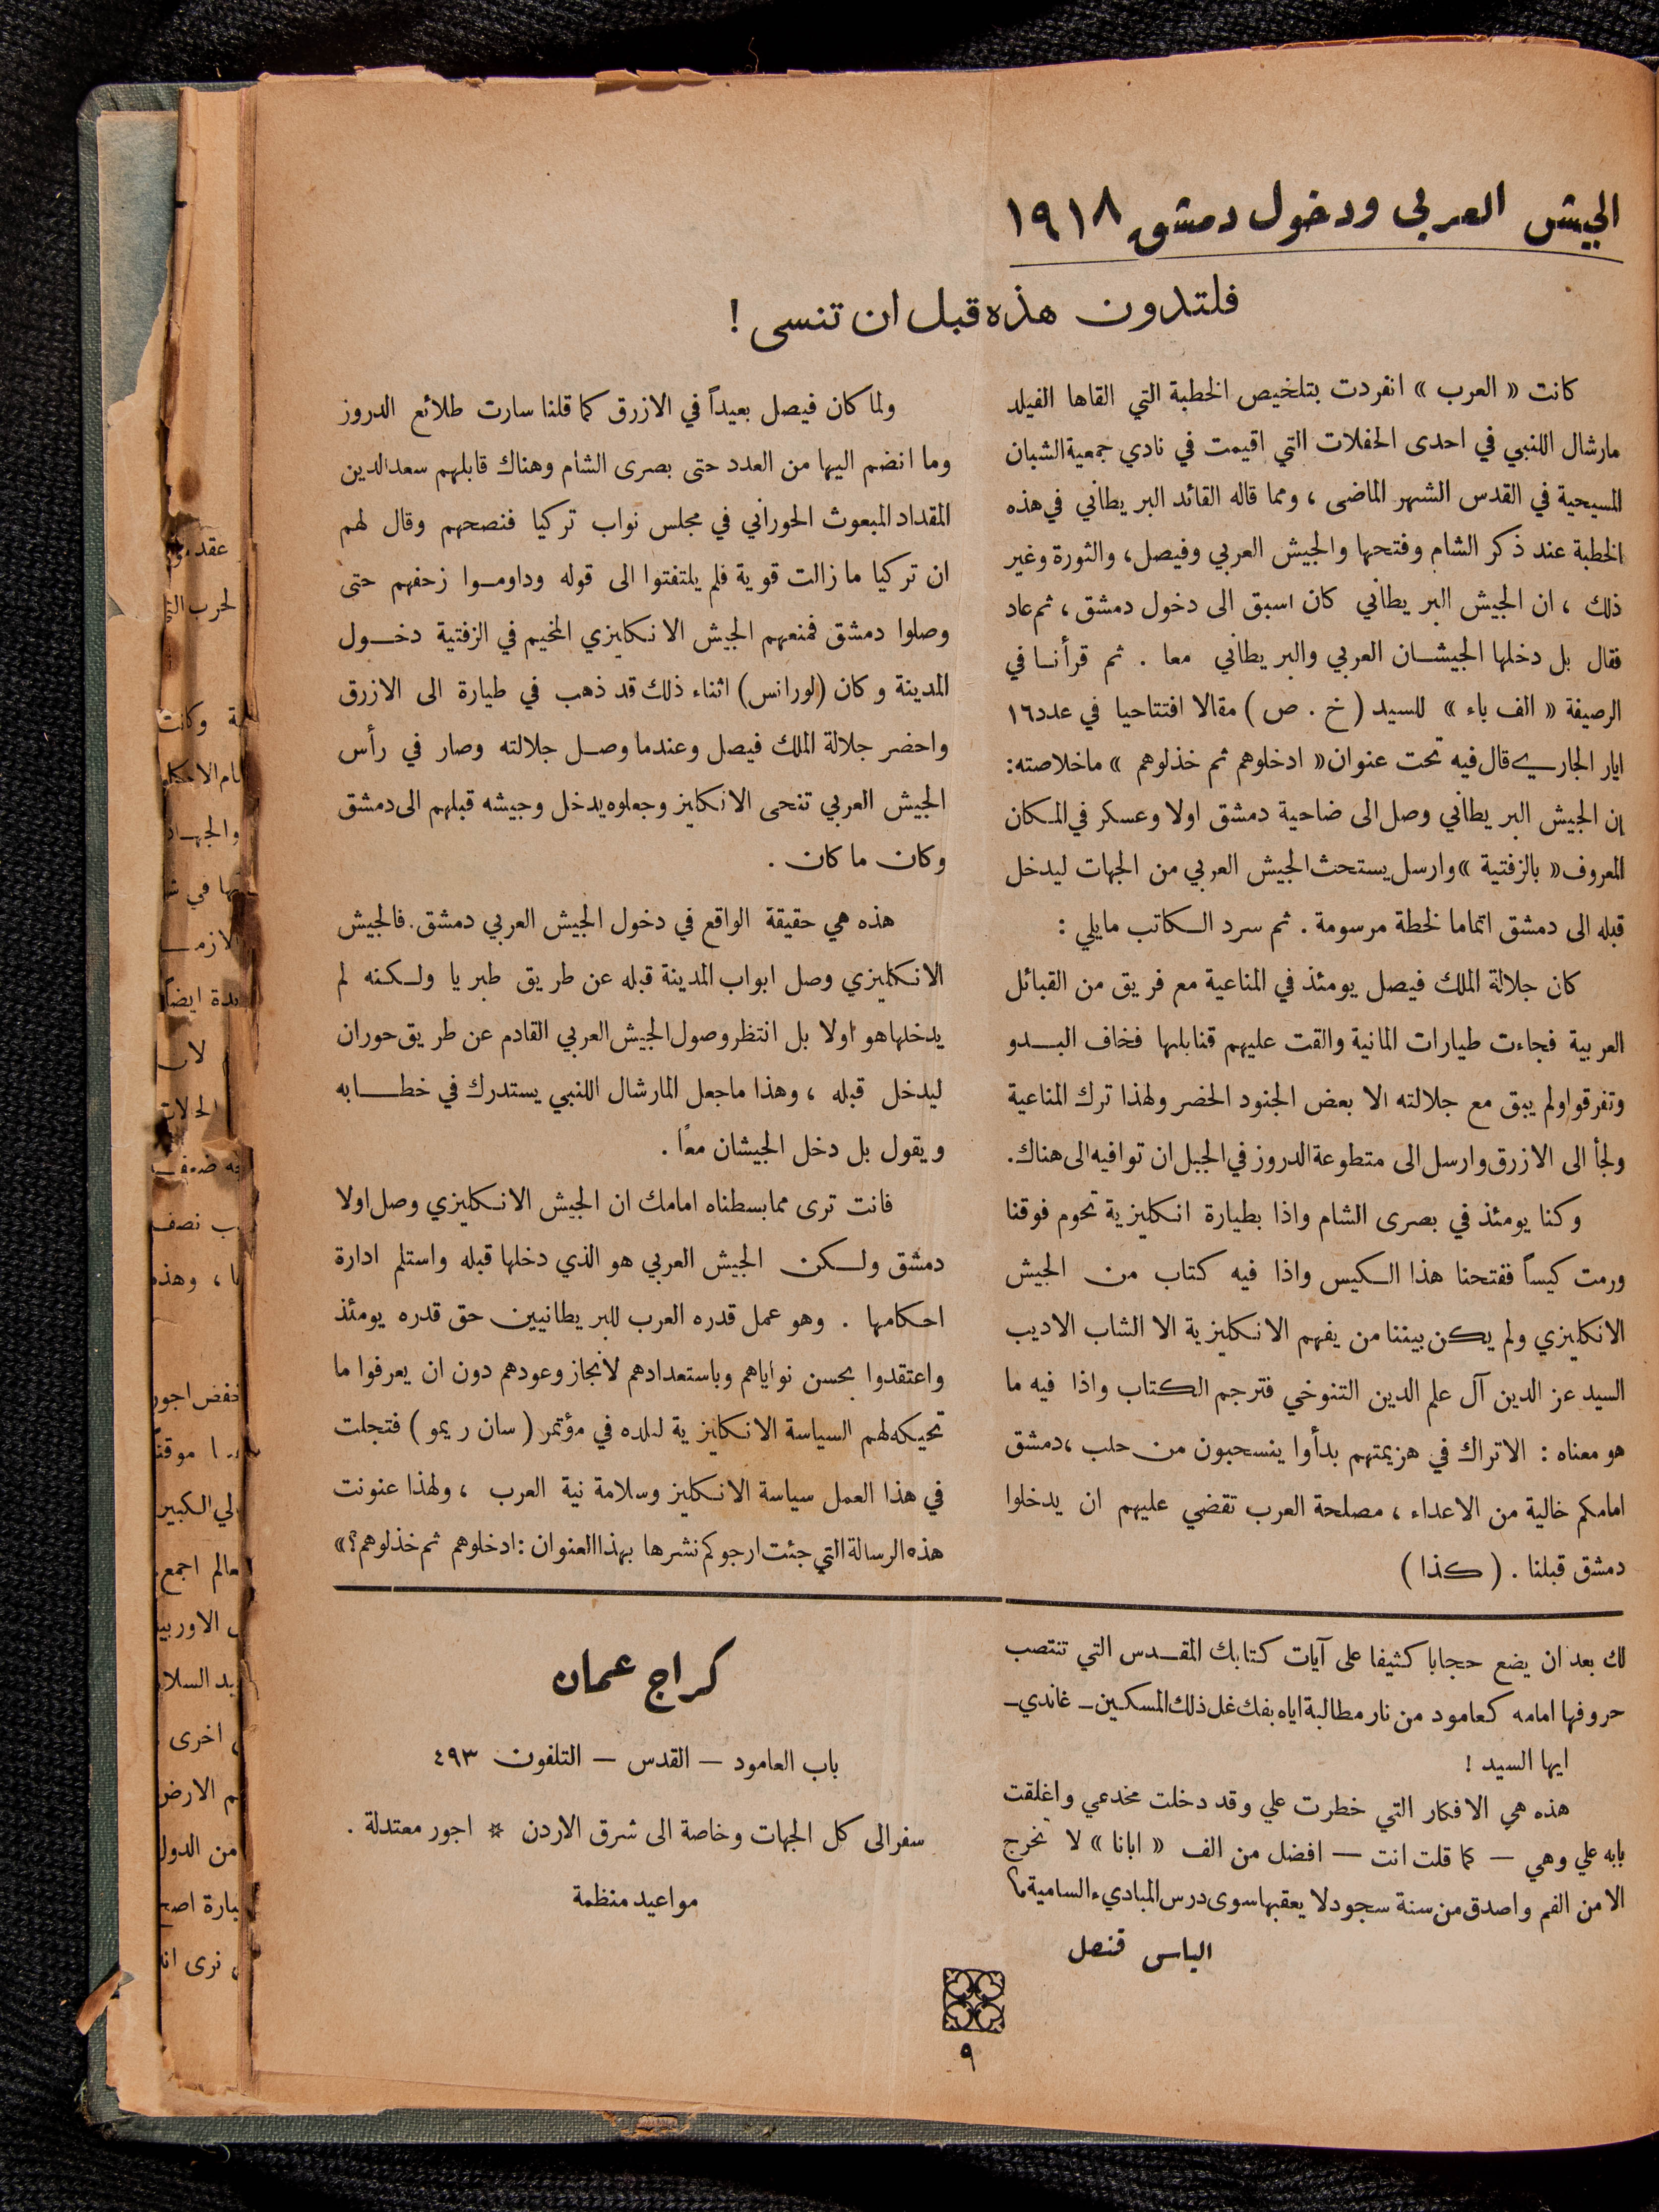 الجيش العربي ودخول دمشق ١٩١٨
فلتدون هذه قبل ان تنسى !
كانت « العرب » انفردت بتلخيص الخطبة التي القاها الفيلد
مارشال اللنبي في احدى الحفلات التي اقيمت في نادي جمعية الشبان
المسيحية في القدس الشهر الماضى ، ومما قاله القائد البريطاني في هذه
الخطبة عند ذكر الشام وفتحها والجيش العربي وفيصل، والثورة وغير
ذلك ، ان الجيش البريطاني كان اسبق الى دخول دمشق ، ثم عاد
فقال بل دخلها الجيشان العربي والبريطاني معا . ثم قرأنا في
الرصيفة « الف باء » للسيد ( خ . ص ) مقالا افتتاحيا في عدد ١٦
ايار الجاري قال فيه تحت عنوان « ادخلوهم ثم خذلوهم » ماخلاصته :
إن الجيش البريطاني وصل الى ضاحية دمشق اولا وعسكر في المكان
المعروف « بالزفتية » وارسل يستحث الجيش العربي من الجهات ليدخل
قبله الى دمشق اتماما لخطة مرسومة . ثم سرد الكاتب مايلي :
كان جلالة الملك فيصل يومئذ في المناعية مع فريق من القبائل
العربية فجاءت طيارات المانية والقت عليهم قنابلها فخاف البدو
وتفرقوا ولم يبق مع جلالته الا بعض الجنود الحضر ولهذا ترك المناعية
ولجأ الى الازرق وارسل الى متطوعة الدروز في الجبل ان توافيه الى هناك .
وكنا يومئذ في بصرى الشام واذا بطيارة انكليزية تحوم فوقنا
ورمت كيساً ففتحنا هذا الكيس واذا فيه كتاب من الجيش
الانكليزي ولم يكن بيننا من يفهم الانكليزية الا الشاب الاديب
السيد عز الدين آل علم الدين التنوخي فترجم الكتاب واذا فيه ما
هو معناه : الاتراك في هزيمتهم بدأوا ينسحبون من حلب ، دمشق
امامكم خالية من الاعداء ، مصلحة العرب تقضي عليهم ان يدخلوا
دمشق قبلنا . ( كذا )
ولما كان فيصل بعيداً في الازرق كما قلنا سارت طلائع الدروز
وما انضم اليها من العدد حتى بصرى الشام وهناك قابلهم سعدالدين
المقداد المبعوث الحوراني في مجلس نواب تركيا فنصحهم وقال لهم
ان تركيا ما زالت قوية فلم يلتفتوا الى قوله وداوموا زحفهم حتى
وصلوا دمشق فمنعهم الجيش الانكليزي المخيم في الزفتية دخول
المدينة وكان (لورانس) اثناء ذلك قد ذهب في طيارة الى الازرق
واحضر جلالة الملك فيصل وعندما وصل جلالته وصار في رأس
الجيش العربي تنحى الانكليز وجعلوه يدخل وجيشه قبلهم الى دمشق
وكان ما كان .
هذه هي حقيقة الواقع في دخول الجيش العربي دمشق . فالجيش
الانكليزي وصل ابواب المدينة قبله عن طريق طبريا ولكنه لم
يدخلها هو اولا بل انتظر وصول الجيش العربي القادم عن طريق حوران
ليدخل قبله ، وهذا ماجعل المارشال اللنبي يستدرك في خطابه
ويقول بل دخل الجيشان معاً .
فانت ترى مما بسطناه امامك ان الجيش الانكليزي وصل اولا
دمشق ولكن الجيش العربي هو الذي دخلها قبله واستلم ادارة
احكامها . وهو عمل قدره العرب للبريطانيين حق قدره يومئذ
واعتقدوا بحسن نواياهم وباستعدادهم لانجاز وعودهم دون ان يعرفوا ما
تحيكه لهم السياسة الانكليزية لبلده في مؤتمر ( سان ريمو ) فتجلت
في هذا العمل سياسة الانكليز وسلامة نية العرب ، ولهذا عنونت
هذه الرسالة التي جئت ارجوكم نشرها بهذا العنوان : ادخلوهم ثم خذلوهم ؟»
لك بعد ان يضع حجابا كثيفا على آيات كتابك المقدس التي تنتصب
حروفها امامه كعامود من نار مطالبة اياه بفك غل ذلك المسكين ـ غاندي ـ
ايها السيد !
هذه هي الافكار التي خطرت علي وقد دخلت مخدعي واغلقت
بابه علي وهي — كما قلت انت — افضل من الف « ابانا » لا تخرج
الا من الفم واصدق من سنة سجود لا يعقبها سوى درس المباديء السامية
الياس قنصل
كراج عمان
باب العامود — القدس — التلفون ٤٩٣
سفر الى كل الجهات وخاصة الى شرق الاردن * اجور معتدلة .
مواعيد منظمة
٩